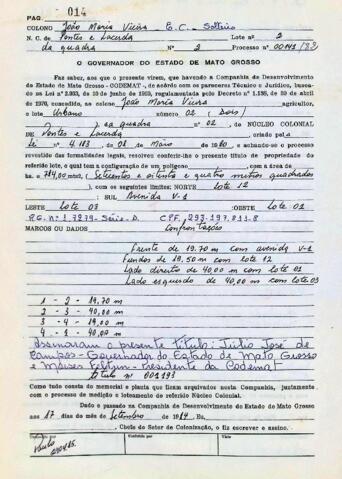 PAG. 014
COLONO João Maria Vieira E.C. Solteiro
N. C. de Pontes e Lacerda LOTE nº 2
da quadra nº 2 Processo nº 00141/83
O GOVERNADOR DO ESTADO DE MATO GROSSO
Faz saber, aos que o presente virem, que havendo a Companhia de Desenvolvimento
do Estado de Mato Grosso - CODEMAT -, de acordo com os pareceres Técnico e Jurídico, baseados
na Lei nº 2.933, de 10 de junho de 1969, regulamentada pelo Decreto nº 1.138, de 29 de abril
de 1970, concedido, ao colono João Maria Vieira agricultor,
o lote Urbano nº 02 (Dois)
da quadra nº 02, do NÚCLEO COLONIAL
DE Pontes e Lacerda criado pela
Lei 4.183, de 08 de Maio de 1980, e achando-se o processo
revestido das formalidades legais, resolveu conferir-lhe o presente título de propriedade do
referido lote, o qual tem a configuração de um polígono com a área de
hs. e 784,00 mts2, (Setecentos e oitenta e quatro metros quadrados
), com os seguintes limites: NORTE Lote 12
SUL Avenida V-1
LESTE Lote 03 OESTE Lote 01
R.G. nº 1.7279-Série-D. CPF. 293-197.811-8
MARCOS OU DADOS Confrontação
Frente de 19.70 m com avenida V-1
Fundos de 19,50 m com Lote 12
Lado direito de 40,00 m com Lote 01
Lado esquerdo de 40,00 m com Lote 03
1 - 2 - 19,70 m
2 - 3 - 40,00 m
3 - 4 - 19,00 m
4 - 1 - 40,00 m
Assinaram o presente titulo: Júlio José de
Campos - Governador do Estado de Mato Grosso
e Moises Feltrin - Presidente da Codemat
titulo nº 001193
Como tudo consta do memorial e planta que ficam arquivados nesta Companhia, juntamente
com o processo de medição e loteamento do referido Núcleo Colonial.
Dado e passado na Companhia de Desenvolvimento do Estado de Mato Grosso
aos 17 dias do mês de Setembro de 1984
Chefe do Setor de Colonização, o fiz escrever e assino.